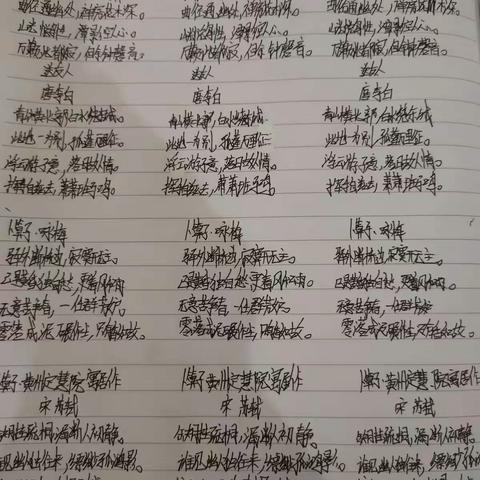 曲径通幽处,禅房花木深。 曲径通幽处,禅房花木深。 曲径通幽处,禅房花木深。
山光悦鸟性,潭影空人心。 山光悦鸟性,潭影空人心。 山光悦鸟性,潭影空人心。
万籁此都寂,但余钟磬音。 万籁此都寂,但余钟磬音。 万籁此都寂,但余钟磬音。
送友人 送友人 送友人
唐李白 唐李白 唐李白
青山横北郭,白水绕东城。 青山横北郭,白水绕东城。 青山横北郭,白水绕东城
此地一为别,孤蓬万里征。 此地一为别,孤蓬万里征 此地一为别,孤蓬万里征。
浮云游子意,落日故人情。 浮云游子意,落日故人情。 浮云游子意,落日故人情。
挥手自兹去,萧萧班马鸣。 挥手自兹去,萧萧班马鸣。 挥手自兹去,萧萧班马鸣。
卜算子·咏梅 卜算子·咏梅 卜算子·咏梅
驿外断桥边,寂寞开无主。 驿外断桥边,寂寞开无主。 驿外断桥边,寂寞开无主。
已是黄昏独自愁,更著风和雨 已是黄昏独自愁,更著风和雨。 已是黄昏独自愁,更著风和雨。
无意苦争春,一任群芳妒。 无意苦争春,一任群芳妒。 无意苦争春,一任群芳妒
零落成泥碾作尘,只有香如故。 零落成泥碾作尘,只有香如故。 零落成泥碾作尘,只有香如故。
卜算子·黄州定慧院寓居作 卜算子·黄州定慧院寓居作 卜算子·黄州定慧院寓居作
宋 苏轼 宋 苏轼 宋 苏轼
缺月挂疏桐,漏断人初静。 缺月挂疏桐,漏断人初静。 缺月挂疏桐,漏断人初静。
谁见幽人独往来,缥缈孤鸿影。 谁见幽人独往来,缥缈孤鸿影。 谁见幽人独往来,缥缈孤鸿